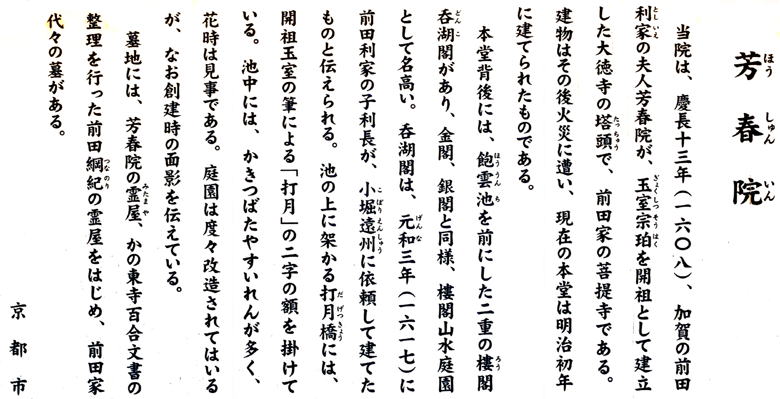 芳春院
ほうしゅんいん
当院は、慶長十三年（一六〇八）、加賀の前田
利家の夫人芳春院が、玉室宗珀を開祖として建立
した大徳寺の塔頭で、前田家の菩提寺である。
建物はその後火災に遭い、現在の本堂は明治初年
に建てられたものである。
本堂背後には、飽雲池を前にした二重の楼閣
呑湖閣があり、金閣、銀閣と同様、楼閣山水庭園
として名高い。呑湖閣は、元和三年（一六一七）に
前田利家の子利長が、小堀遠州に依頼して建てた
ものと伝えられる。池の上に架かる打月橋には、
開祖玉室の筆による「打月」の二字の額を掛けて
いる。池中には、かきつばたやすいれんが多く、
花時は見事である。庭園は度々改造されてはいる
が、なお創建時の面影を伝えている。
墓地には、芳春院の霊屋、かの東寺百合文書の
整理を行った前田綱紀の霊屋をはじめ、前田家
代々の墓がある。
京都市